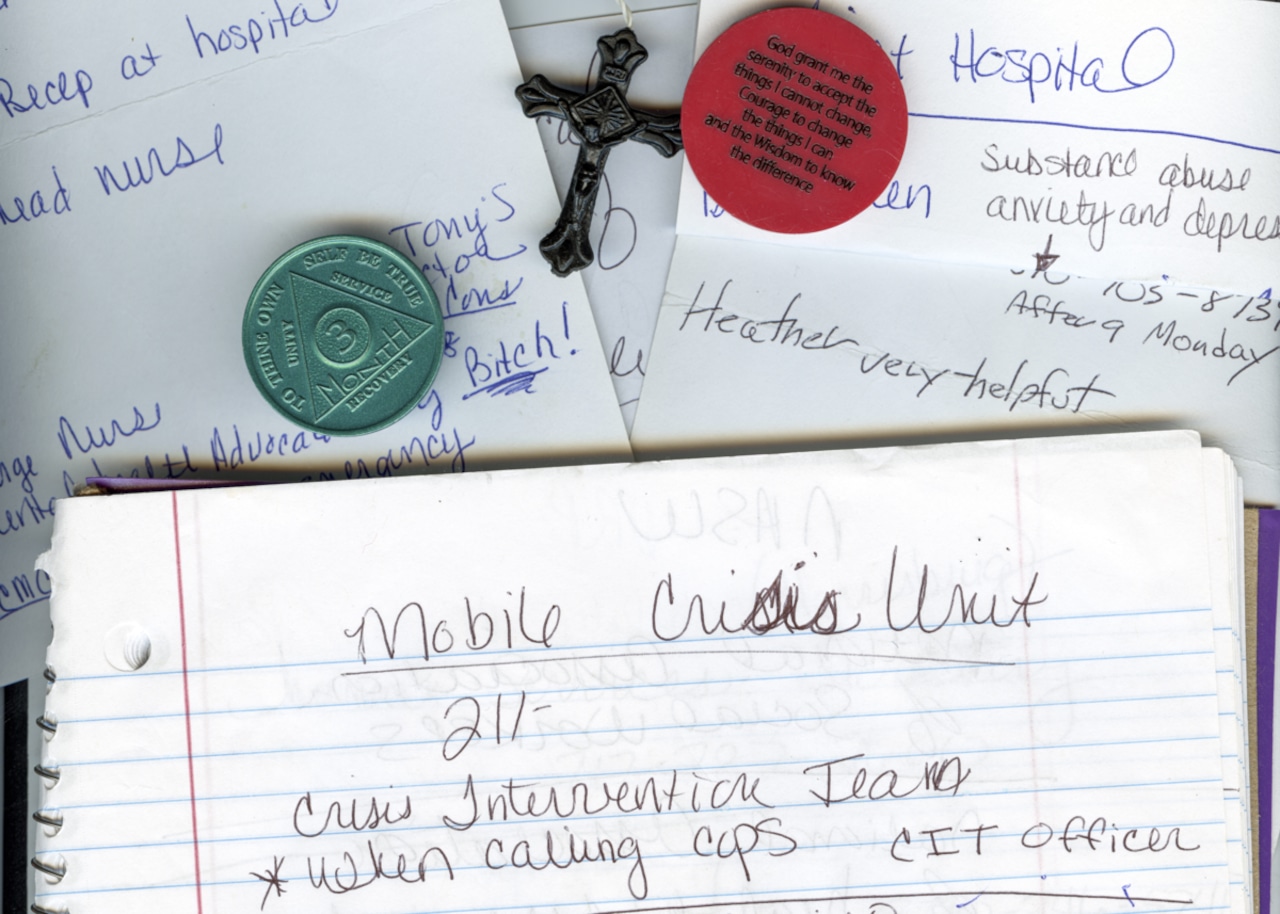 Recep at hospital
head nurse
Tony's
Cons
Bitch!
Nurs
Health Advoca
TO THINE OWN SELF BE TRUE
UNITY
SERVICE
RECOVERY
3
MONTH
God grant me the
serenity to accept the
things I cannot change,
Courage to change
the things I can,
and the Wisdom to know
the difference
Hospital
Substance abuse
anxiety and depres
After 9 Monday
Heather very helpful
Mobile Crisis Unit
211-
Crisis Intervention Team
* When calling cops CIT Officer